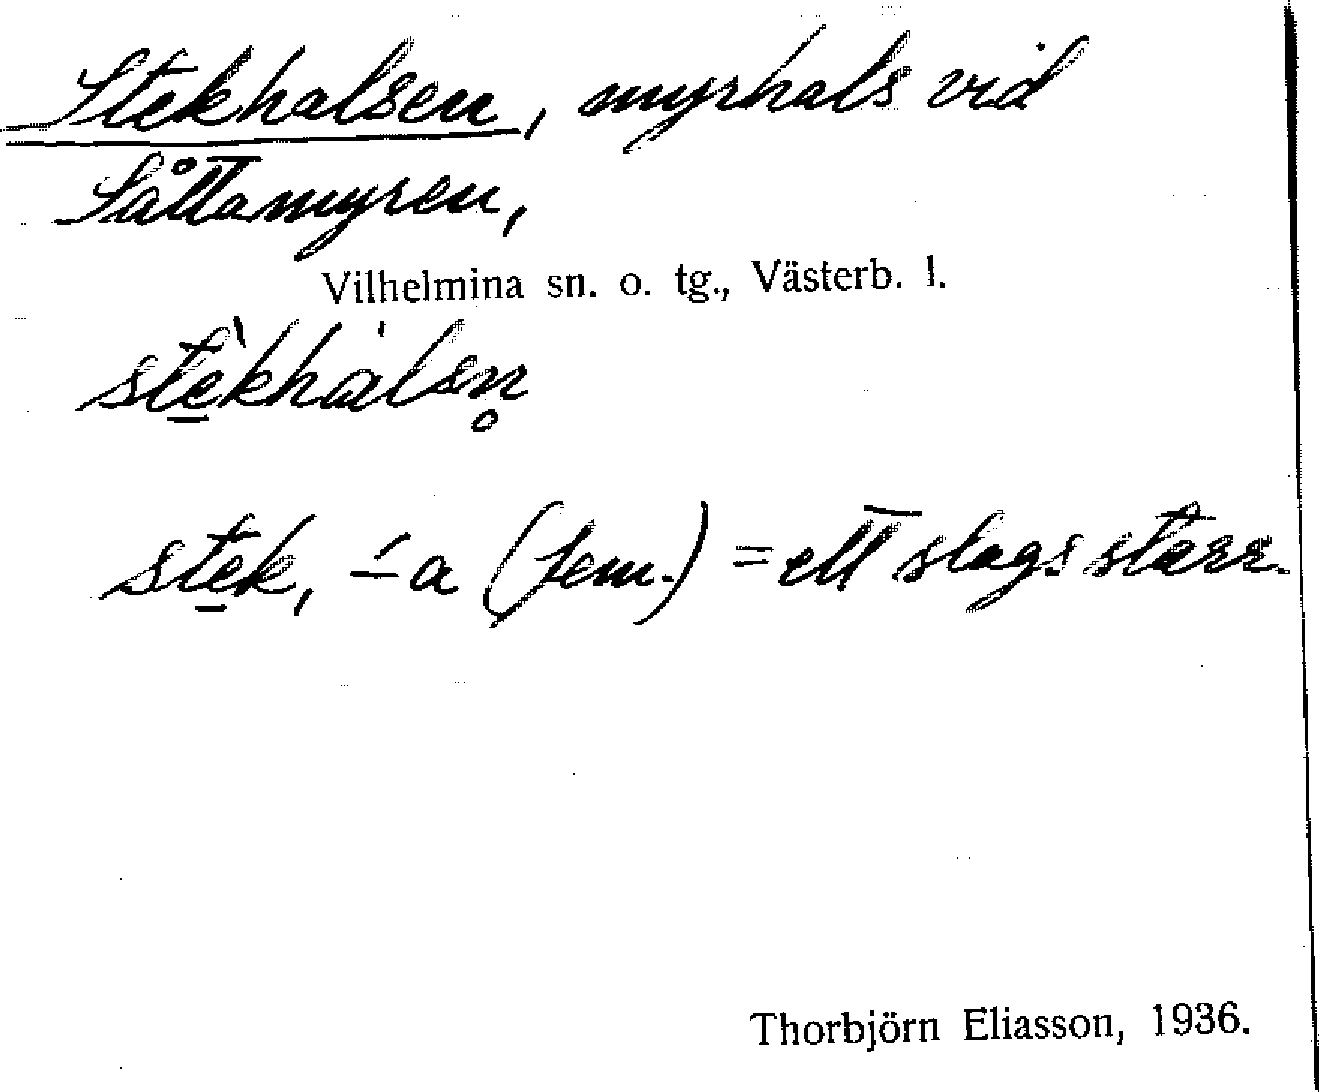 Stekhalsen, myrhals vid
Såttamyren,
Vilhelmina sn. o. tg., Västerb. l.
stè̲khálsn̥
ste̲k, -́a (fem.) = ett slags starr.
Thorbjörn Eliasson, 1936.